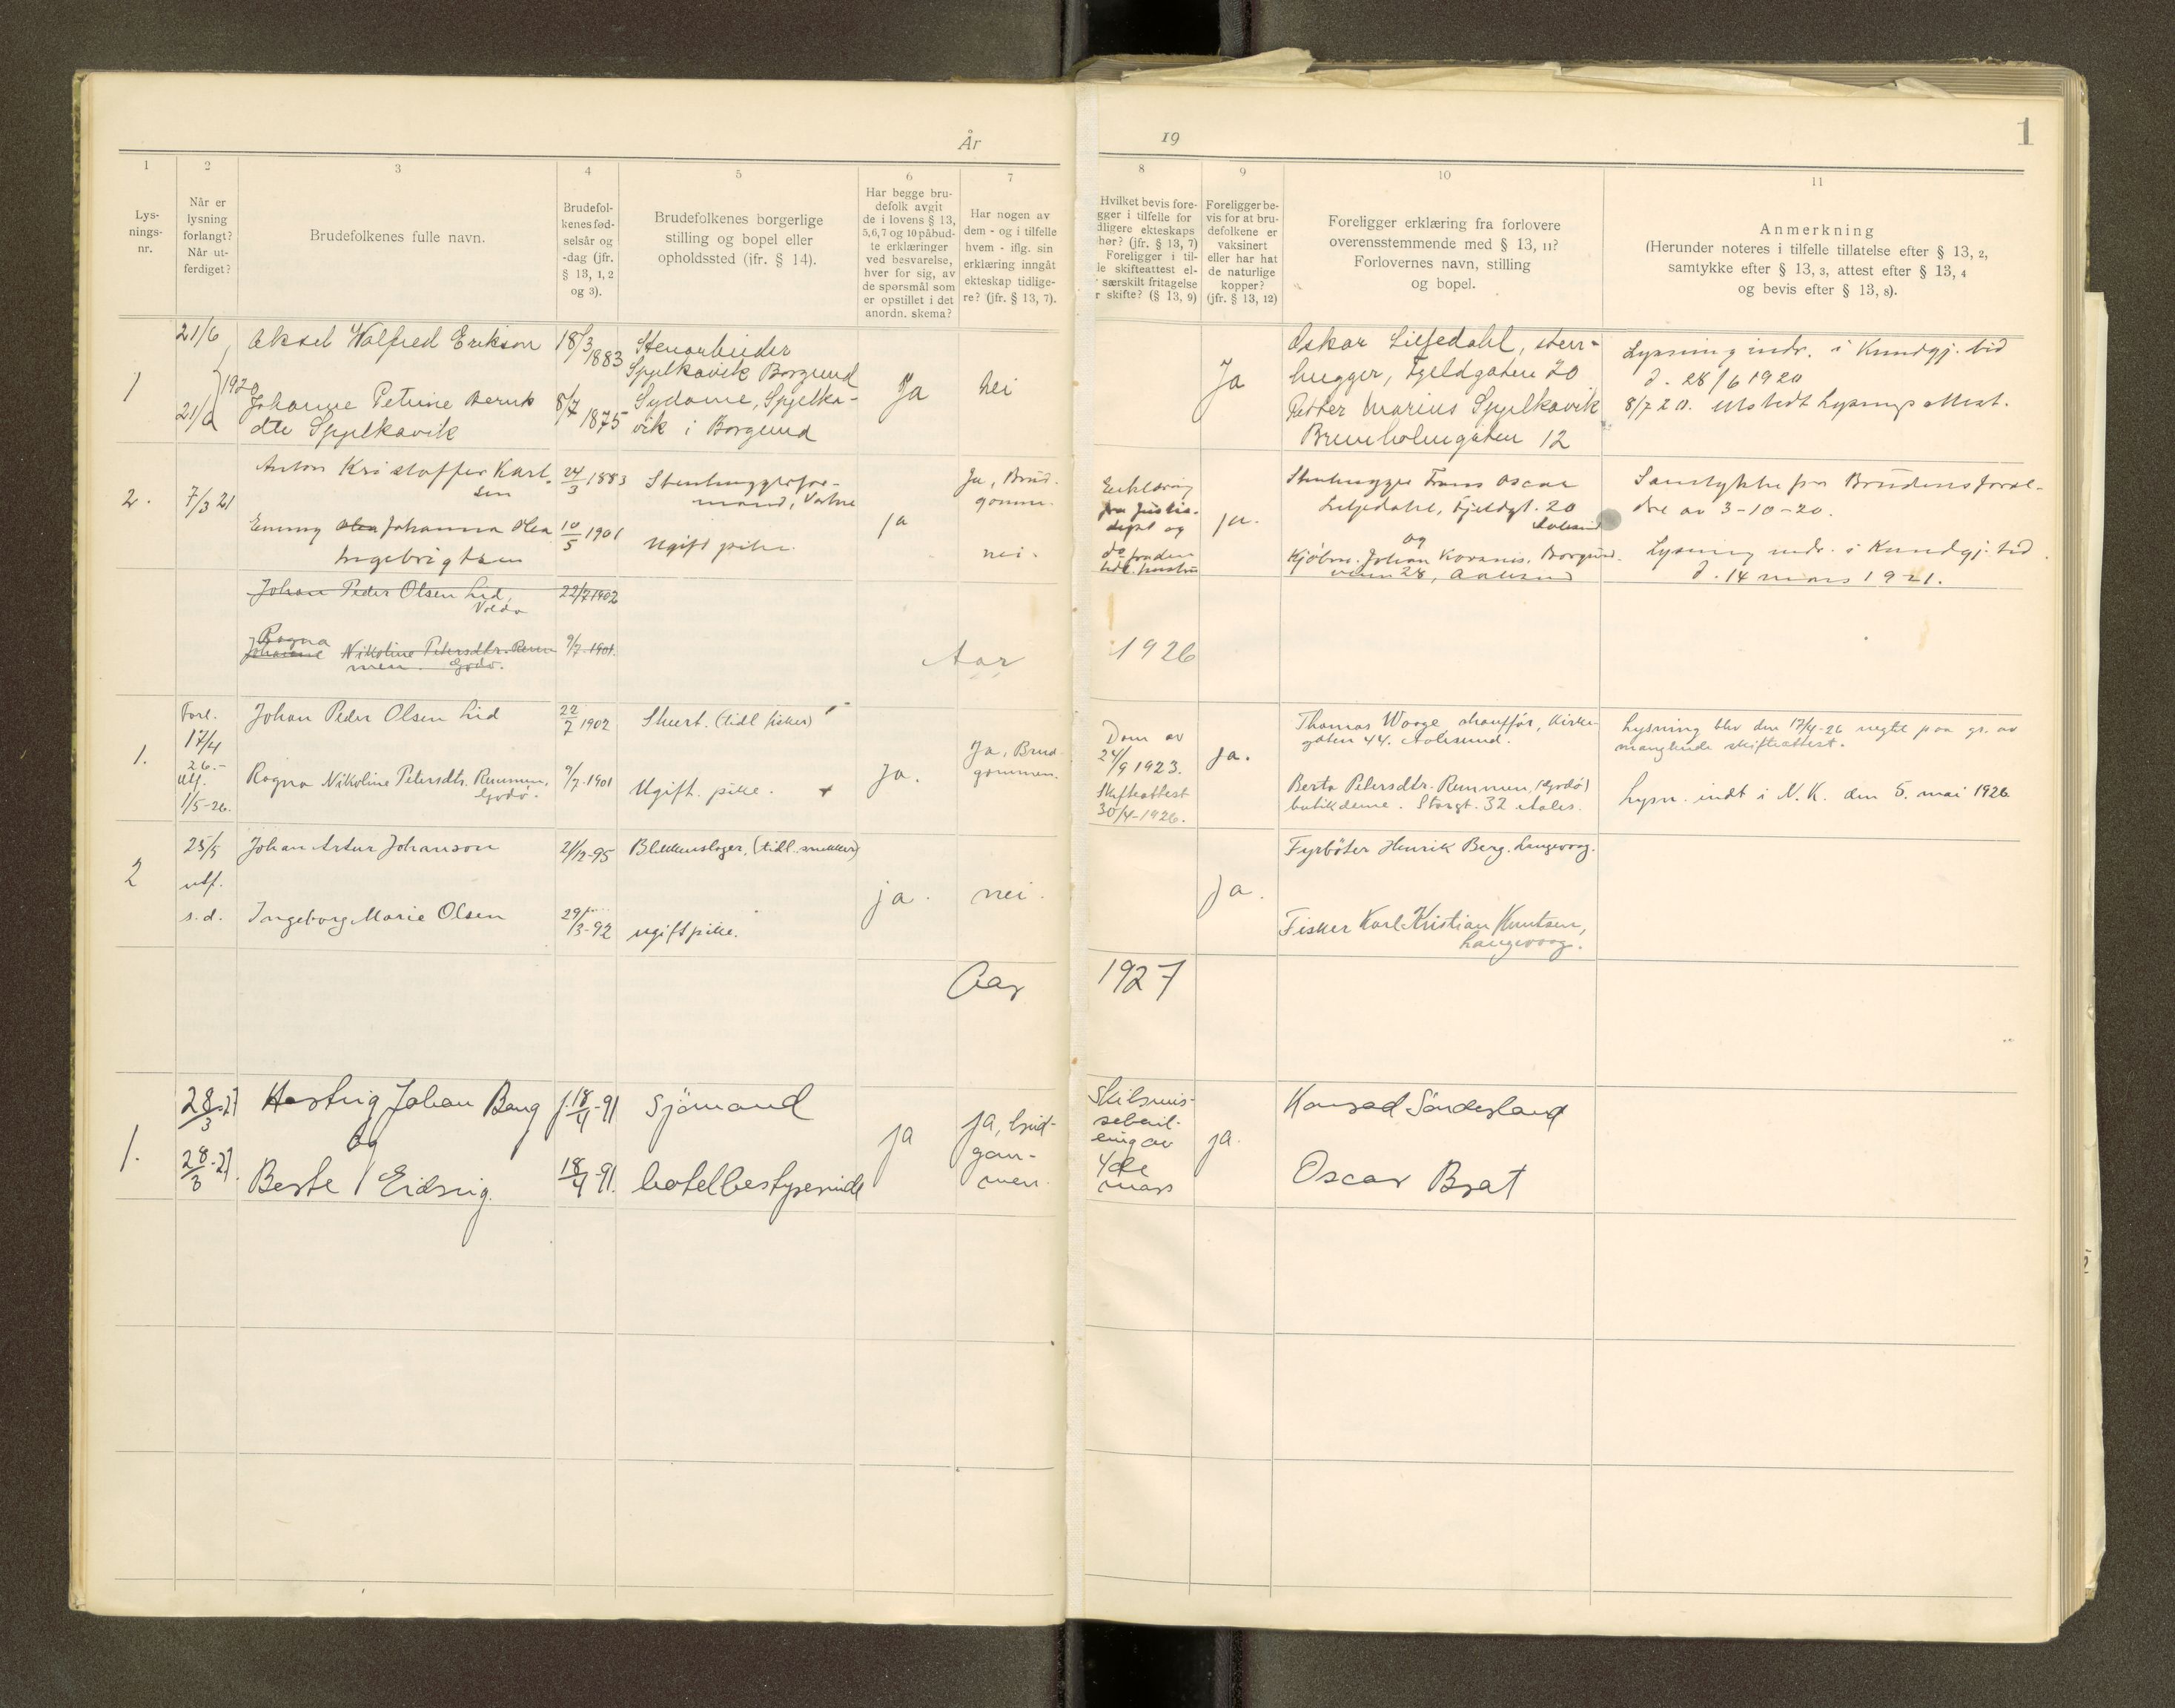 År 19
1
1
Lys-
nings-
nr.
2
Når er
lysning
forlangt?
Når ut-
ferdiget?
3
Brudefolkenes fulle navn.
4
Brudefol-
kenes fød-
selsår og
-dag (jfr.
§ 13, 1, 2
og 3).
5
Brudefolkenes borgerlige
stilling og bopel eller
opholdssted (ifr. § 14).
6
Har begge bru-
defolk avgit
de i lovens § 13,
5,6,7 og 10 påbud-
te erklæringer
ved besvarelse,
hver for sig, av
de spørsmål som
er opstillet i det
anordn. skema?
7
Har nogen av
dem - og i tilfelle
hvem - iflg. sin
erklæring inngåt
ekteskap tidlige-
re? (jfr. § 13, 7).
8
Hvilket bevis fore-
gger i tilfelle for
dligere ekteskaps
hør? (jfr. § 13, 7)
Foreligger i til-
le skifteattest el-
særskilt fritagelse
r skifte? (§ 13, 9)
9
Foreligger be-
vis for at bru-
defolkene er
vaksinert
eller har hat
de naturlige
kopper?
(jfr. § 13, 12)
10
Foreligger erklæring fra forlovere
overensstemmende med § 13, 11?
Forlovernes navn, stilling
og bopel.
11
Anmerkning
(Herunder noteres i tilfelle tillatelse efter § 13, 2,
samtykke efter § 13, 3, attest efter § 13, 4
og bevis efter § 13, 8).
1
21/6
1920
21/6
Aksel Walfred Erikson
Johanne Petrine Bernts
dtr Spjelkavik
18/3 1883
8/7 1875
Stenarbeider
Spjelkavik Borgund
Sydame, Spjelka-
vik i Borgund
Ja
nei
Ja
Oskar Liljedahl, sten-
hugger, Fjeldgaten 20
Petter Marius Spjelkavik
Brunholmgaten 12
Lysning indr. i Kundgj. tid
d. 28/6 1920
8/7 20. Utstedt lysningsattest.
2.
7/3 21
Anton Kristoffer Karl-
sen
Emmy Olea Johanna Olea
Ingebrigtsen
24/3 1883
10/5 1901
Stenhuggerfor-
mand, Vatne
Ugift pike.
ja
Ja, Brud-
gomm.
nei.
Erklæring
fra Justis-
dept og
do fra den
tidl. hustru
ja.
Stenhugger Frans Oscar
Liljedahl, Fjeldgt. 20
Aalesund
og
Kjøbm. Johan Korsnes, Borgund-
veien 28, Aalesund
Samtykke fra Brudens foræl-
dre av 3-10-20.
Lysning indr. i Kundgj. tid.
d. 14 mars 1921.
Johan Peder Olsen Lid,
Volda
22/7 1902
Ragna
Johanne Nikoline Petersdtr. Rem
men. Godø.
9/7 1901.
Aar 1926
1.
Forl.
17/4
26.-
Utf.
1/5-26.
Johan Peder Olsen Lid
Ragna Nikoline Petersdtr. Remmen,
Godø.
22/7 1902
9/7-1901
Stuert. (tidl fisker)
Ugift. pike.
Ja.
Ja, Brud-
gommen.
Dom av
24/9 1923.
Skifteattest
30/4-1926.
Ja.
Thomas Waage, chauffør, Kirke-
gaten 44. Aalesund.
Berta Petersdtr. Remmen, (Godø)
butikdame. Storgt. 32 Aales.
Lysning blev den 17/4-26 negtet paa gr. av
manglende skifteattest.
Lysn. indt i N. K. den 5. mai 1926
2
25/5
utf.
s.d.
Johan Artur Johanson
Ingeborg Marie Olsen
21/12-95
29/3-92
Blikkenslager, (tidl. snekker)
ugift pike.
ja.
nei.
Ja.
Fyrbøter Henrik Berg. Langevaag.
Fisker Karl Kristian Knutsen,
Langevaag.
Aar 1927
1.
28/3-27
28/3-27.
Hartvig Johan Bang
og
Berte Eidsvig.
f. 18/4-91
18/4-91.
Sjömand
hotelbestyrerinde
ja
ja, brud-
gom-
men.
Skilsmis-
sebevil-
ling av
4de
mars
ja.
Konrad Sönderland
Oscar Brat